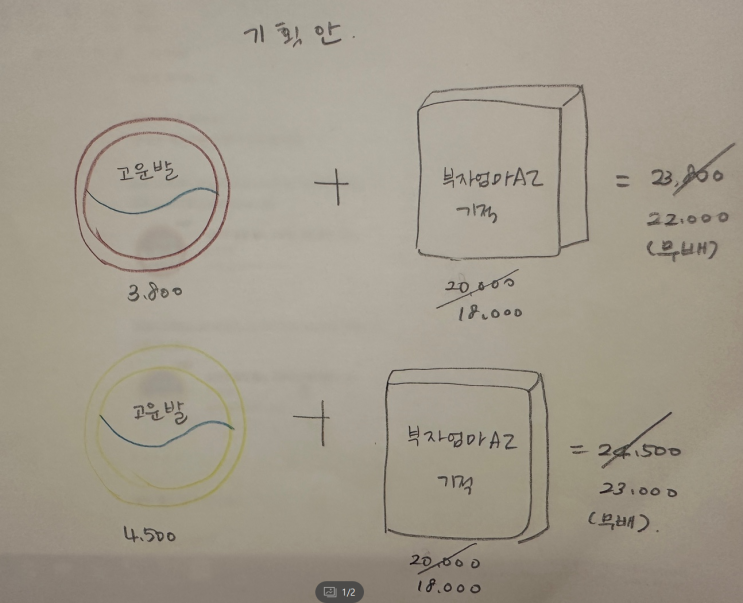 기획안.
고운발
+
북자엄마AZ
기적
= 23,800
22.000
(무배)
3.800
20,000
18.000
고운발
+
북자엄마AZ
기적
= 24.500
23.000
(무배).
4.500
20,000
18.000
1/2